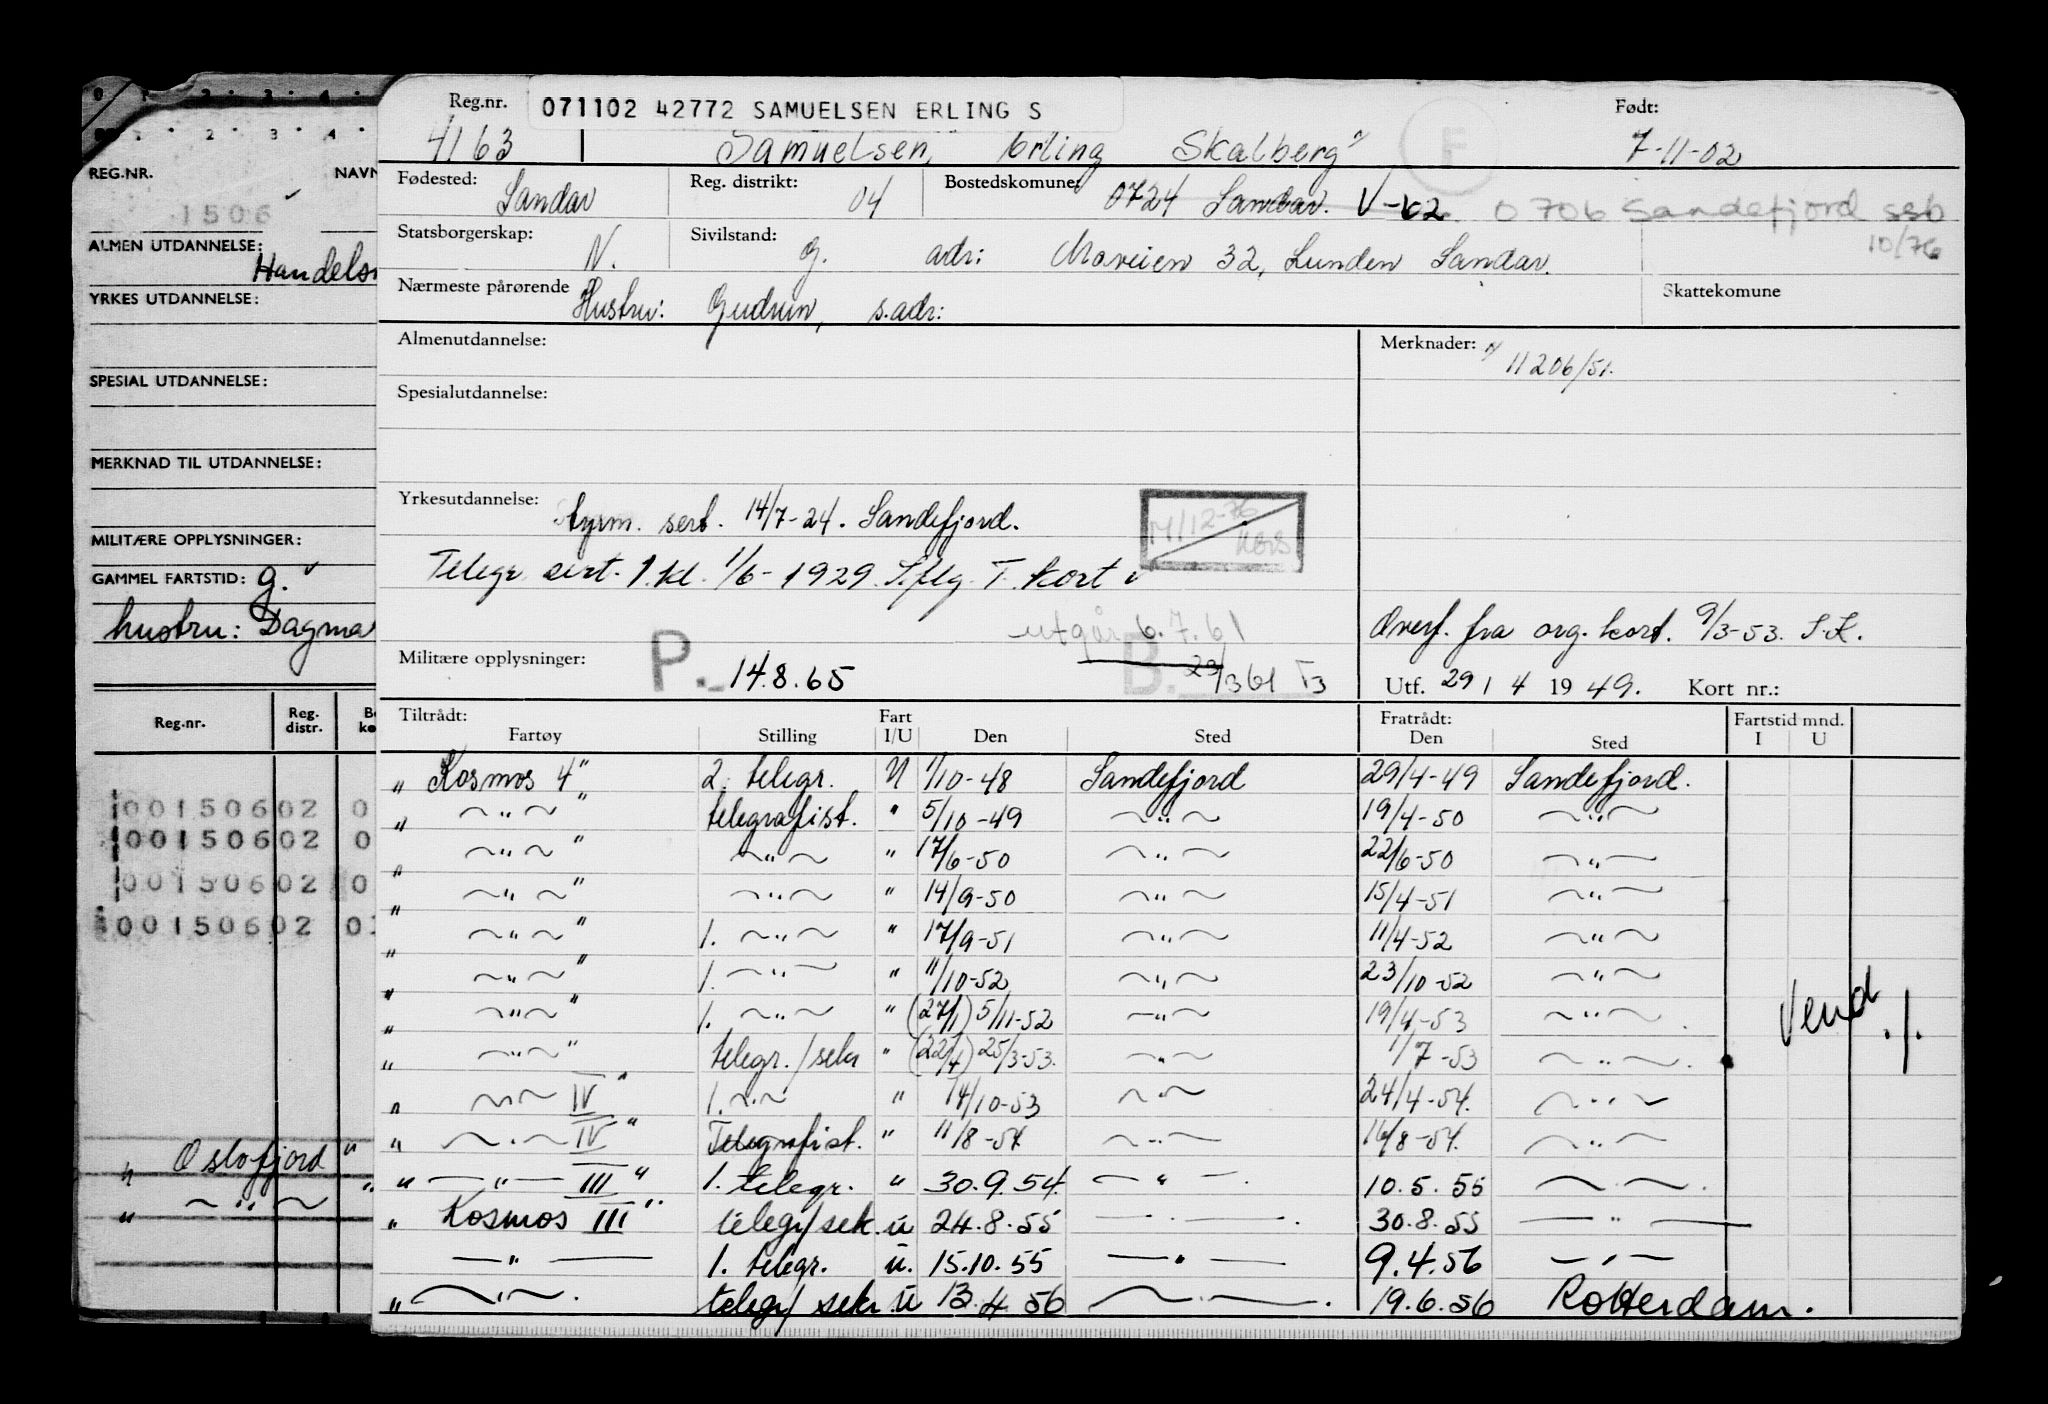 REG.NR. NAVN
1506
ALMEN UTDANNELSE:
Handels
YRKES UTDANNELSE:
SPESIAL UTDANNELSE:
MERKNAD TIL UTDANNELSE:
MILITÆRE OPPLYSNINGER:
GAMMEL FARTSTID: g.
hustru: Dagma
Reg.nr. Reg. distr.
00150602 0
00150602 0
00150602 0
00150602 0
" Oslofjord "
" ~ " ~ "
Reg.nr. 071102 42772 SAMUELSEN ERLING S Født:
4163 Samuelsen, Erling Skalberg" F 7-11-02
Fødested: Sandar Reg. distrikt: 04 Bostedskomune: 0724 Sandar. V-62 0706 Sandefjord ssb
10/76
Statsborgerskap: N. Sivilstand: G. adr: Moveien 32, Lunden Sandar.
Nærmeste pårørende Hustru: Gudrun, s.adr: Skattekomune
Almenutdannelse: Merknader: 11206/51.
Spesialutdannelse:
Yrkesutdannelse: Styrm. sert. 14/7-24. Sandefjord.
14/12-76
Telegr. sert. 1.kl. 1/6-1929. S.flg. T. kort
utgår 6.7.61 Overf. fra org. kort. 9/3-53. S.K.
Militære opplysninger: P. 14.8.65 B. 29/361 T3 Utf. 29/4 1949. Kort nr.:
Tiltrådt: Fartøy Stilling Fart I/U Den Sted Fratrådt: Den Sted Fartstid mnd. I U
" Kosmos 4" 2. telegr. U 1/10-48 Sandefjord 29/4-49 Sandefjord.
" ~"~ " telegrafist. " 5/10-49 ~"~ 19/4-50 ~"~
" ~"~ " ~"~ " 17/6-50 ~"~ 22/6-50 ~"~
" ~"~ " ~"~ " 14/9-50 ~"~ 15/4-51 ~"~
" ~"~ " 1. ~"~ " 17/9-51 ~"~ 11/4-52 ~"~
" ~"~ " 1. ~"~ " 11/10-52 ~"~ 23/10-52 ~"~
" ~"~ " 1. ~"~ " (27/1) 5/11-52 ~"~ 19/4-53 ~"~
" ~"~ " telegr./sekr " (22/4) 25/3-53. ~"~ 1/7-53 ~"~.
Vend ./.
" ~"~ IV " 1. ~"~ " 14/10-53 ~"~ 24/4-54. ~"~
" ~"~ IV " Telegrafist. " 11/8-54 ~"~ 16/8-54. ~"~
" —"— III " 1. telegr. " 30.9.54. —"—. 10.5.55 ~"~.
" Kosmos III " telegr/sek. u 24.8.55 —"—. 30.8.55 —"—
—"— 1. telegr. u. 15.10.55 —"— 9.4.56 —"—
" ~"~. telegr/ sekr. u 13.4.56 ~"—. 19.6.56 Rotterdam.